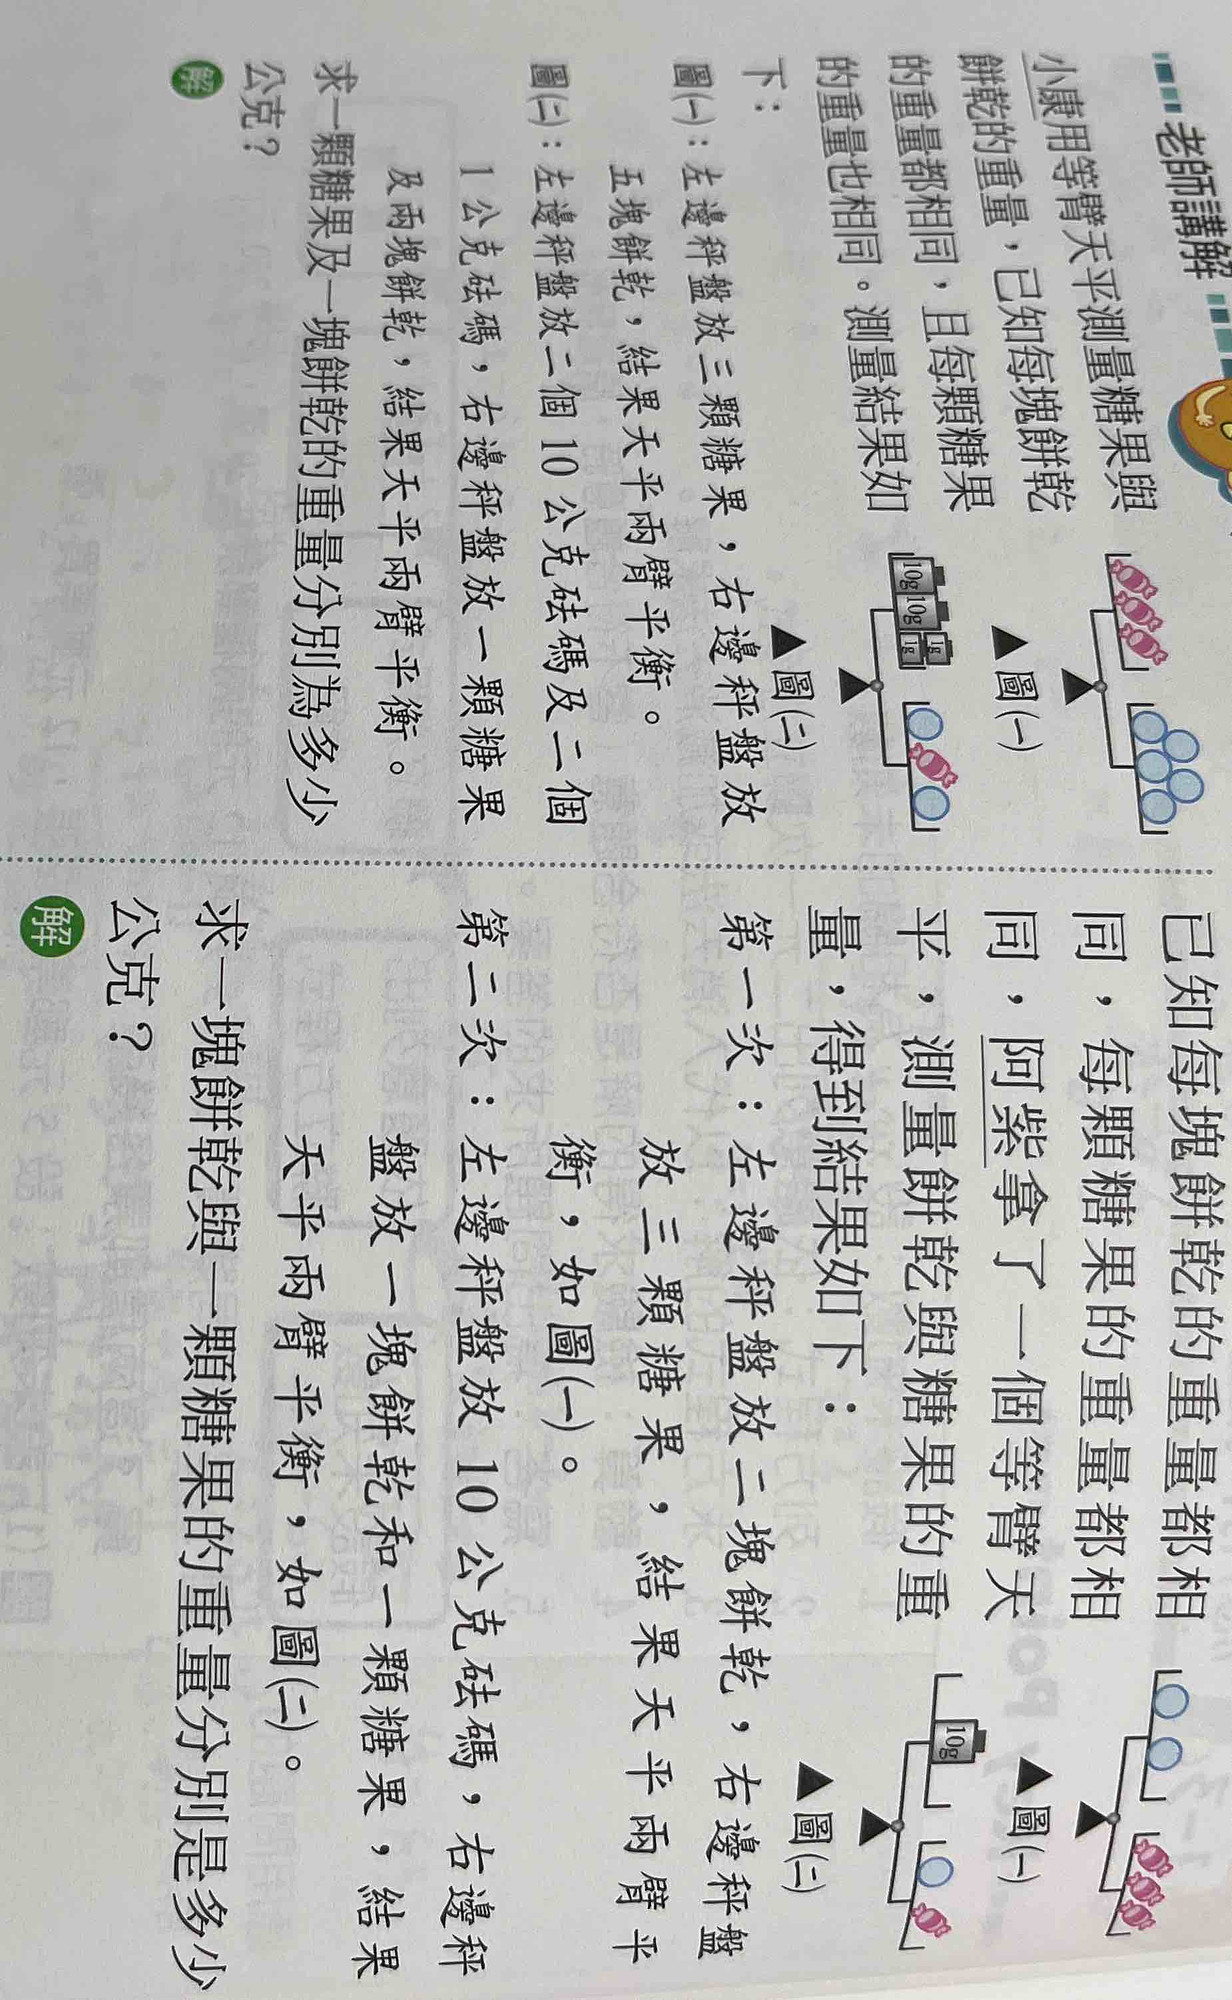 老師講解
小康用等臂天平測量糖果與
餅乾的重量，已知每塊餅乾
的重量都相同，且每顆糖果
的重量也相同。測量結果如
下：
圖(一)：左邊秤盤放三顆糖果，右邊秤盤放
五塊餅乾，結果天平兩臂平衡。
圖(二)：左邊秤盤放二個 10 公克砝碼及二個
1 公克砝碼，右邊秤盤放一顆糖果
及兩塊餅乾，結果天平兩臂平衡。
求一顆糖果及一塊餅乾的重量分別為多少
公克？
解
▲圖(一)
10g 10g 1g 1g
▲圖(二)
已知每塊餅乾的重量都相
同，每顆糖果的重量都相
同，阿紫拿了一個等臂天
平，測量餅乾與糖果的重
量，得到結果如下：
第一次：左邊秤盤放二塊餅乾，右邊秤盤
放三顆糖果，結果天平兩臂平
衡，如圖(一)。
第二次：左邊秤盤放 10 公克砝碼，右邊秤
盤放一塊餅乾和一顆糖果，結果
天平兩臂平衡，如圖(二)。
求一塊餅乾與一顆糖果的重量分別是多少
公克？
解
▲圖(一)
10g
▲圖(二)